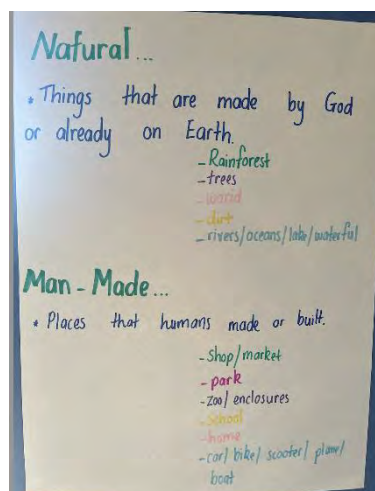 Natural...
• Things that are made by God
or already on Earth.
- Rainforest
- trees
- world
- dirt
- rivers/oceans/lake/waterful
Man-Made...
• Places that humans made or built.
- Shop/market
- park
- zoo/enclosures
- School
- home
- car/bike/scooter/plane/
boat